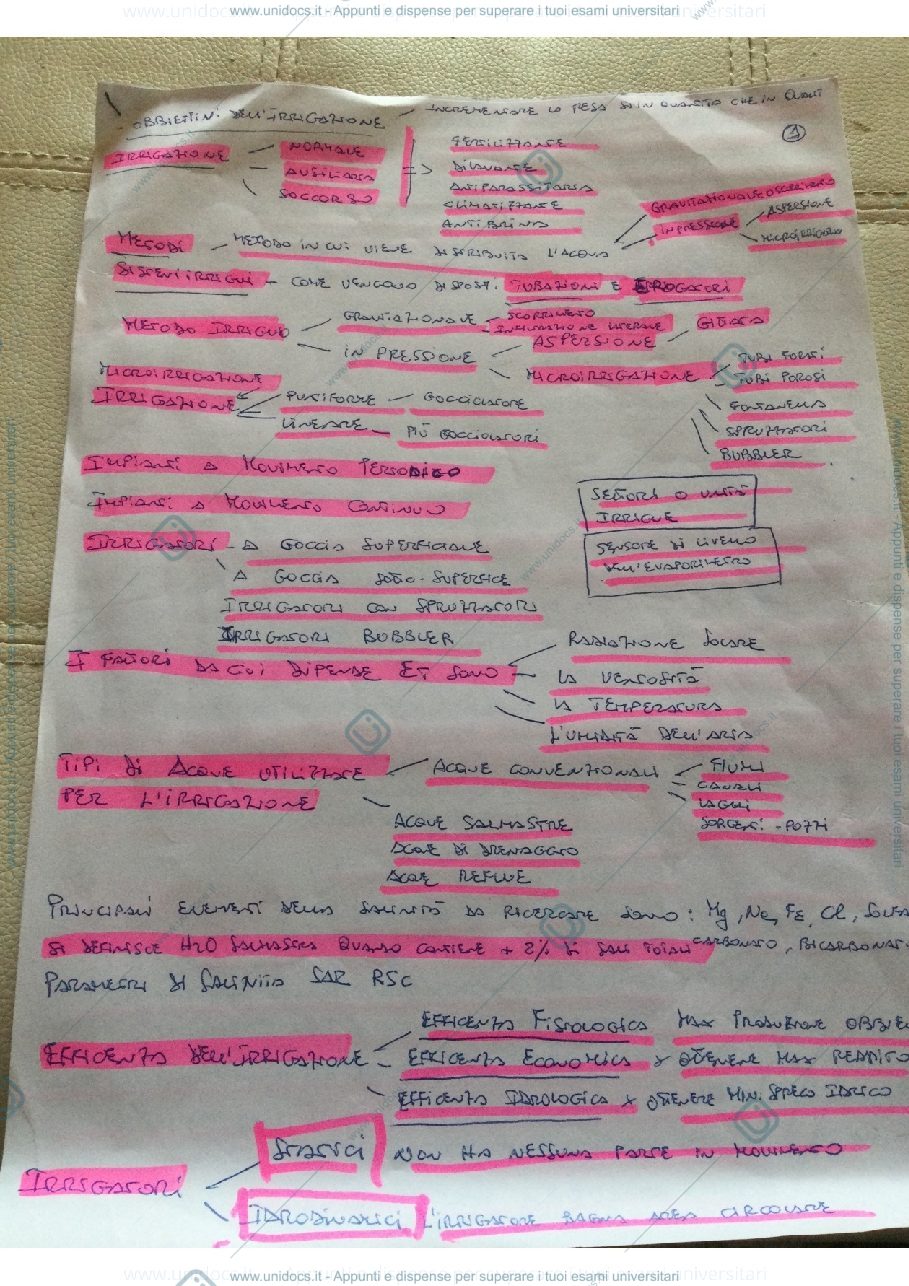 www.unidocs.it - Appunti e dispense per superare i tuoi esami universitari
OBBIETTIVI DELL'IRRIGAZIONE - INCREMENTARE LA RESA SIA IN QUANTITÀ CHE IN QUALIT
1
IRRIGAZIONE - NORMALE
AUSILIARIA
SOCCORSO
=> FERTILIZZANTE
DILAVANTE
ANTIPARASSITARIA
CLIMATIZZANTE
ANTIBRINA
METODI - METODO IN CUI VIENE DISTRIBUITA L'ACQUA
GRAVITAZIONALE O SCORRIMENTO
IN PRESSIONE - ASPERSIONE
MICROIRRIGAZIO
SISTEMI IRRIGUI - COME VENGONO DISPOSTI TUBAZIONI E EROGATORI
METODO IRRIGUO - GRAVITAZIONALE - SCORRIMENTO
INFILTRAZIONE LATERALE
IN PRESSIONE - ASPERSIONE - GITTATA
MICROIRRIGAZIONE - TUBI FORATI
TUBI POROSI
FONTANELLA
SPRUZZATORI
BUBBLER
MICROIRRIGAZIONE
IRRIGAZIONE - PUNTIFORME - GOCCIOLATORE
LINEARE - PIÙ GOCCIOLATORI
IMPIANTI A MOVIMENTO PERIODICO
IMPIANTI A MOVIMENTO CONTINUO
SETTORI O UNITÀ
IRRIGUE
SENSORE DI LIVELLO
DELL'EVAPORIMETRO
IRRIGATORI - A GOCCIA SUPERFICIALE
A GOCCIA SOTTO-SUPERFICE
IRRIGATORI CON SPRUZZATORI
IRRIGATORI BUBBLER
I FATTORI DA CUI DIPENDE ET SONO - RADIAZIONE SOLARE
LA VENTOSITÀ
LA TEMPERATURA
L'UMIDITÀ DELL'ARIA
TIPI DI ACQUE UTILIZZATE
PER L'IRRIGAZIONE
ACQUE CONVENZIONALI - FIUMI
CANALI
LAGHI
SORGENTI - POZZI
ACQUE SALMASTRE
ACQUE DI DRENAGGIO
ACQUE REFLUE
PRINCIPALI ELEMENTI DELLA SALINITÀ DA RICERCARE SONO: Mg, Na, Fe, Cl, SOLFA
CARBONATO, BICARBONAT
SI DEFINISCE H2O SALMASTRA QUANDO CONTIENE + 2% DI SALI TOTALI
PARAMETRI DI SALINITÀ SAR RSC
EFFICENZA DELL'IRRIGAZIONE - EFFICENZA FISIOLOGICA MAX PRODUZIONE OBBIE
EFFICENZA ECONOMICA x OTTENERE MAX REDDITO
EFFICENZA IDROLOGICA x OTTENERE MIN. SPRECO IDRICO
IRRIGATORI - STATICI NON HA NESSUNA PARTE IN MOVIMENTO
IDRODINAMICI L'IRRIGATORE BAGNA AREA CIRCOLARE
www.unidocs.it - Appunti e dispense per superare i tuoi esami universitari